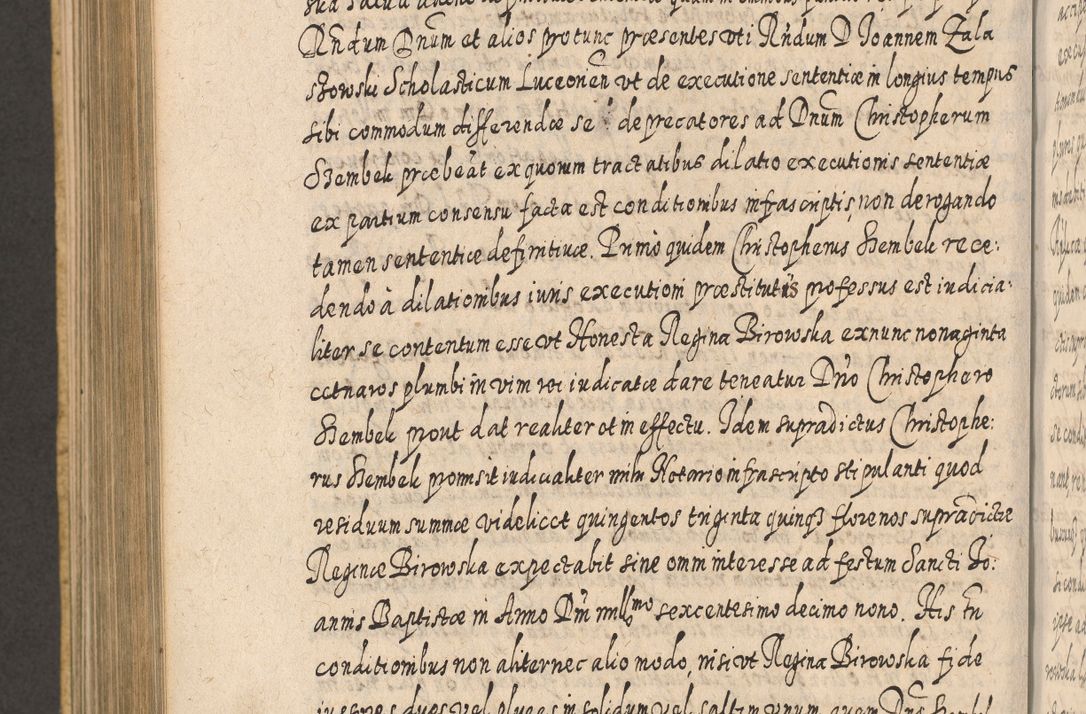 Rndum Dnum et alios protunc præsentes uti Rndum D Joannem Zala
stowski Scholasticum Luceonen ut de executione sententiæ in longius tempus
sibi commodum differendæ se deprecatores ad Dnum Christopherum
Hembek præbeat ex quorum tractatibus dilatio executionis sententiæ
ex partium consensu facta est conditionibus infrascriptis, non derogando
tamen sententiæ definitiuæ. Primo quidem Christopherus Hembek rece:
dendo à dilationibus iuris executioni præstitutis professus est iudicia:
liter se contentum esse ut Honesta Regina Birowska exnunc nonaginta
cetnaros plumbi in vim rei iudicatæ dare teneatur Dno Christophero
Hembek prout dat realiter et in effectu. Idem supradictus Christophe:
rus Hembek promisit iudicialiter mihi Notario infrascripto stipulanti quod
residuum summæ videlicet quingentos triginta quinq3 florenos supradictæ
Reginæ Birowska expectabit sine omni interesse ad festum Sancti Jo:
annis Baptistæ in Anno Dni mill:mo sexcentesimo decimo nono. His tn
conditionibus non aliter nec alio modo, nisi ut Regina Birowska fide
iussores duos vel plures in solidum vel saltim unum, quem Dns Hembek